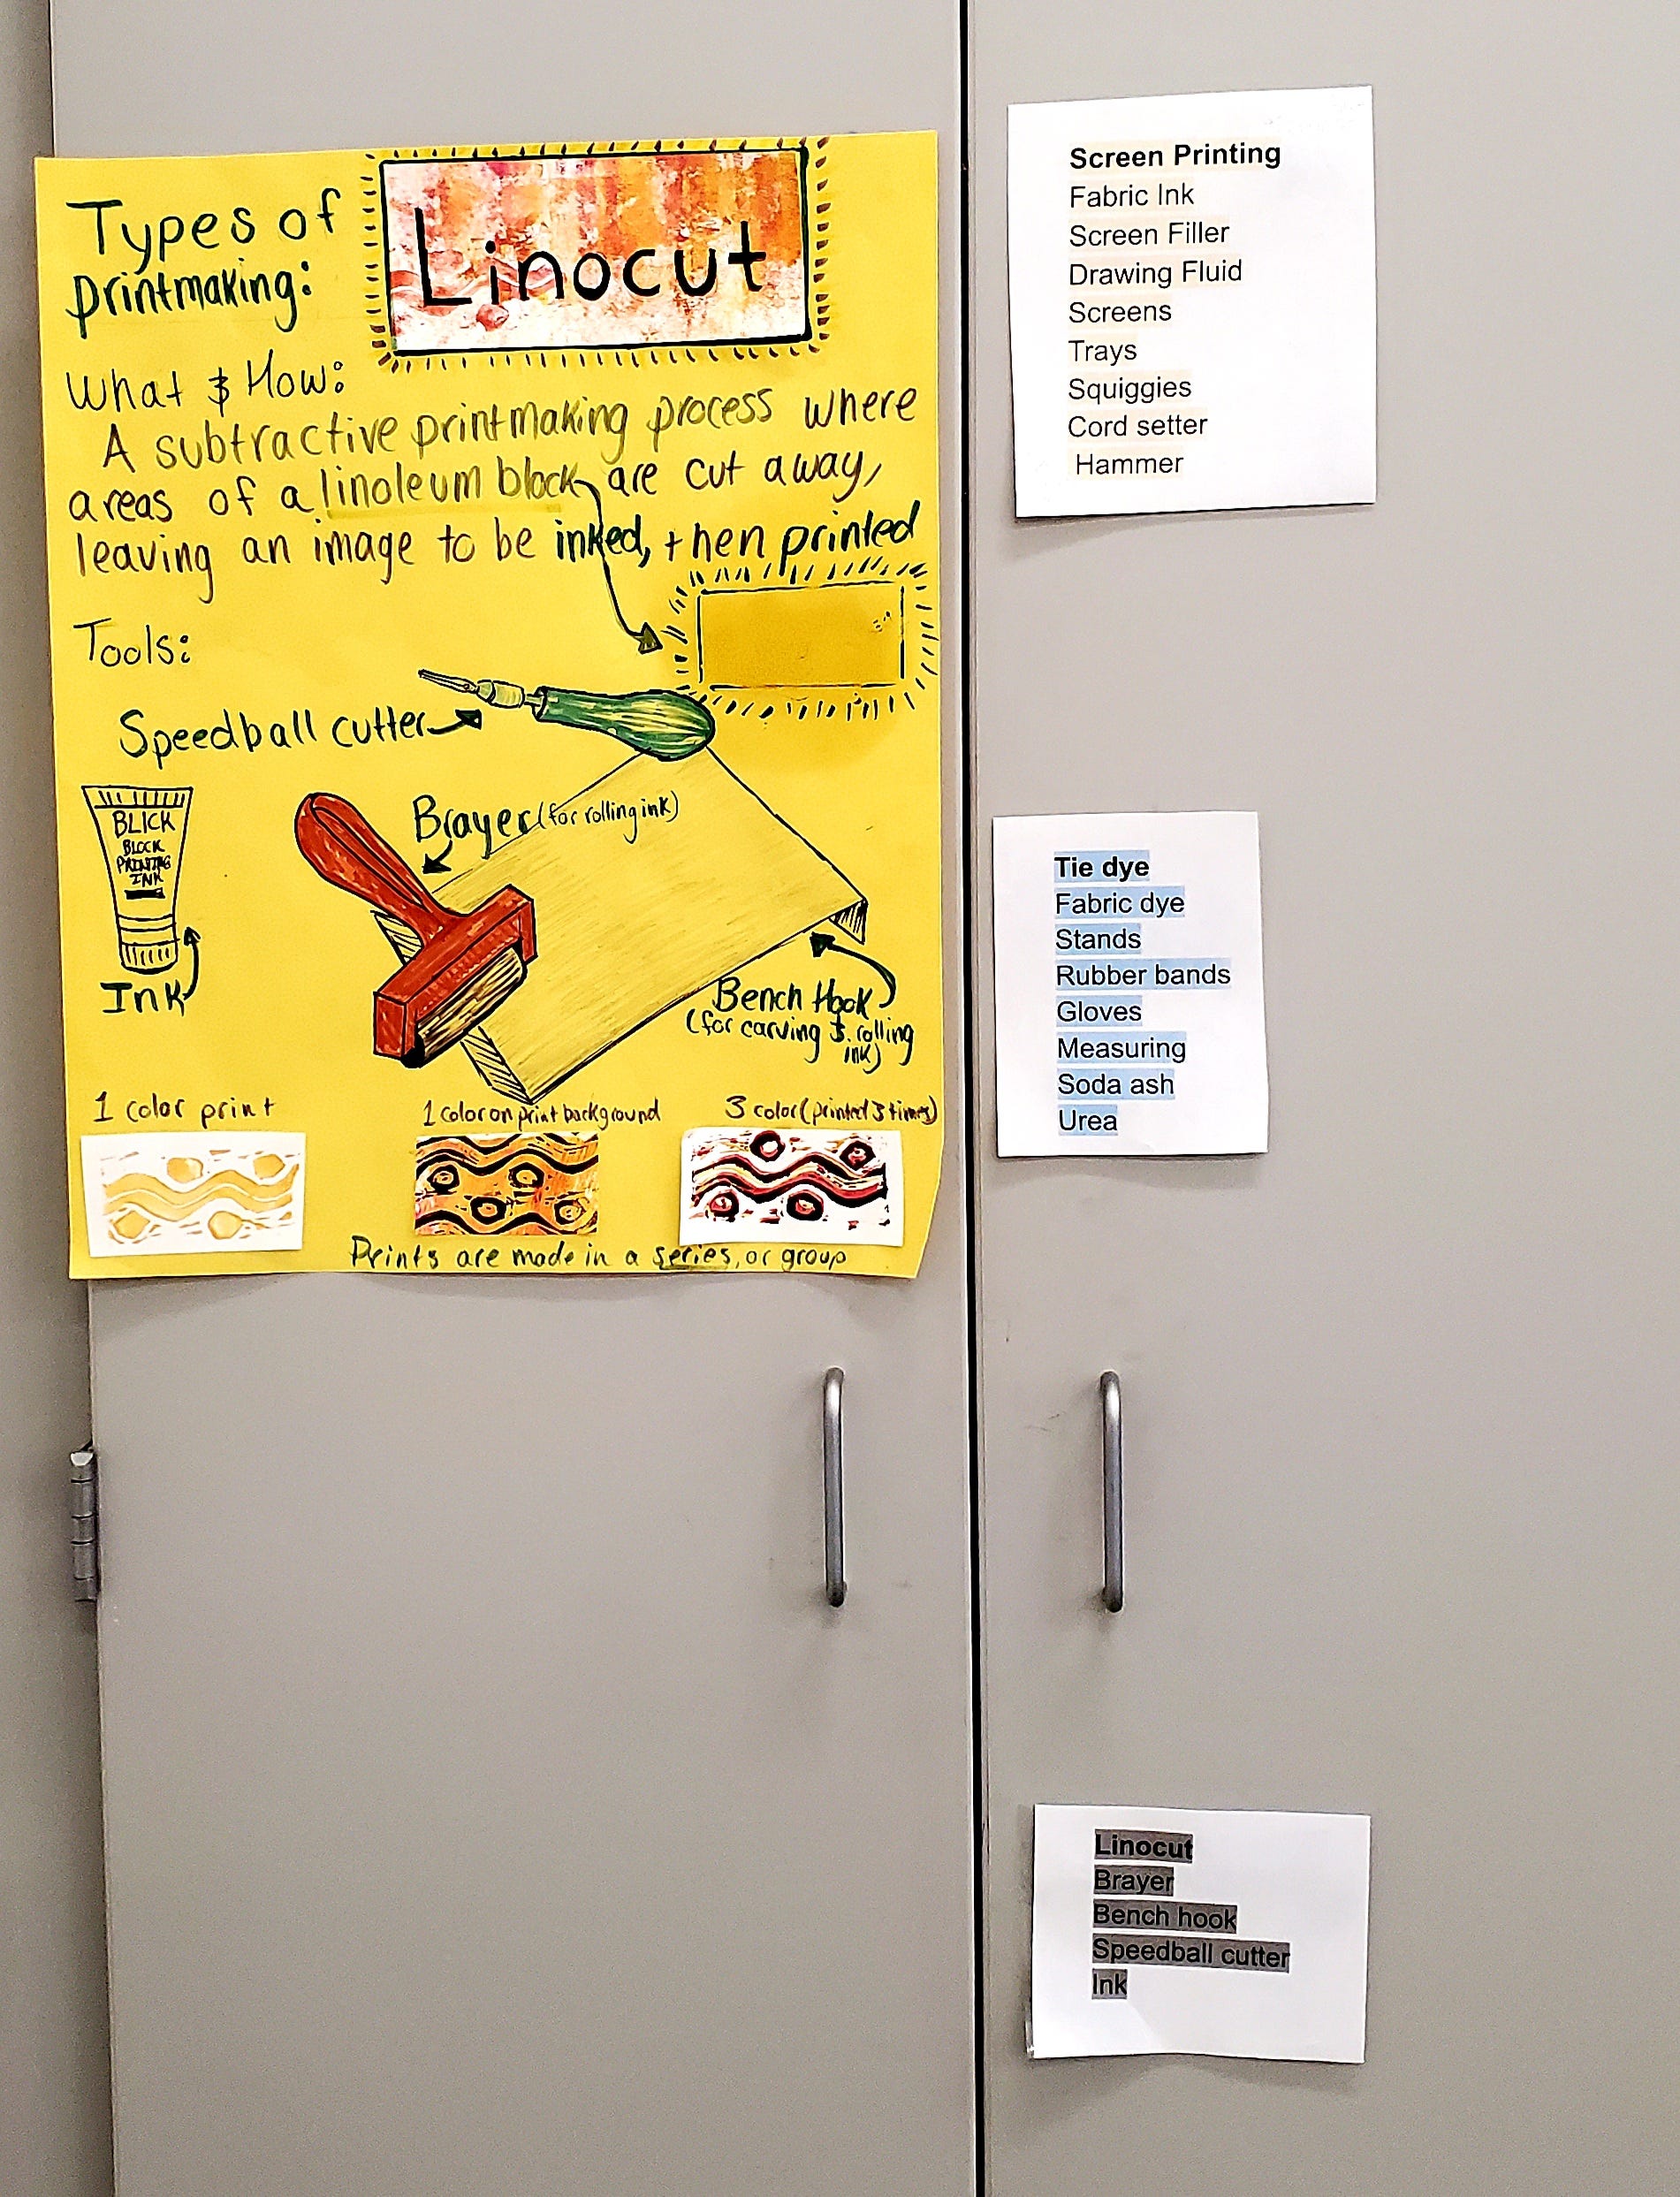 Types of
printmaking:
Linocut
What & How:
A subtractive printmaking process where
areas of a linoleum block are cut away,
leaving an image to be inked, then printed
Tools:
Speedball cutter
BLICK
BLOCK
PRINTING
INK
Ink
Brayer (for rolling ink)
Bench Hook
(for carving & rolling
ink)
1 color print
1 color on print background
3 color (printed 3 times)
Prints are made in a series, or group
Screen Printing
Fabric Ink
Screen Filler
Drawing Fluid
Screens
Trays
Squiggies
Cord setter
Hammer
Tie dye
Fabric dye
Stands
Rubber bands
Gloves
Measuring
Soda ash
Urea
Linocut
Brayer
Bench hook
Speedball cutter
Ink